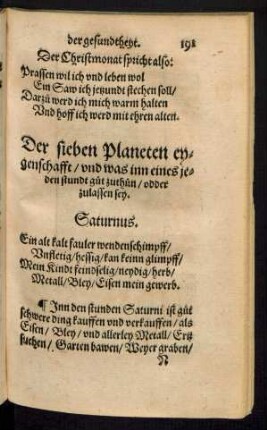 der gesundtheyt. 191
Der Christmonat spricht also:
Prassen wil ich vnd leben wol
Ein Saw ich jetzundt stechen soll/
Darzů werd ich mich warm halten
Vnd hoff ich werd mit ehren alten.
Der sieben Planeten ey-
genschafft / vnd was inn eines je-
den stundt gůt zuthůn / odder
zulassen sey.
Saturnus.
Ein alt kalt fauler wendenschimpff/
Vnfletig/hessig/kan keinn glimpff/
Mein Kindt feindselig/neydig/herb/
Metall/Bley/Eisen mein gewerb.
¶ Inn den stunden Saturni ist gůt
schwere ding kauffen vnd verkauffen / als
Eisen / Bley / vnd allerley Metall / Ertz
suchen / Garten bawen / Weyer graben/
N